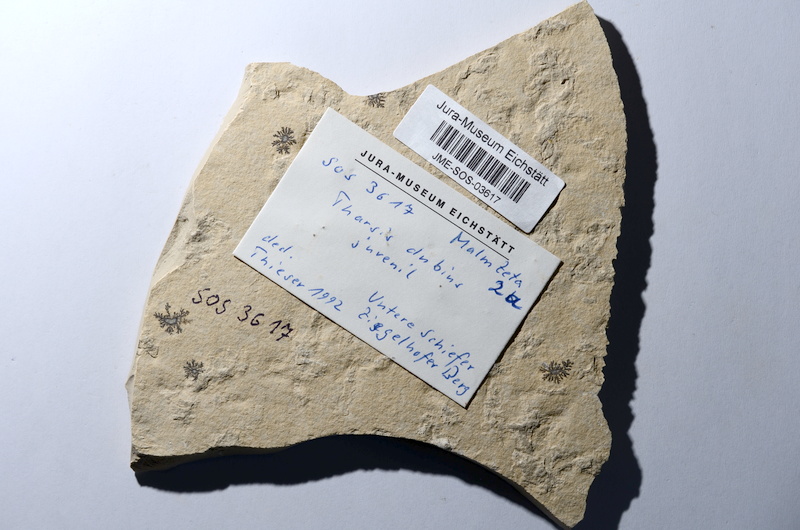 Jura-Museum Eichstätt
JME-SOS-03617
JURA-MUSEUM EICHSTÄTT
SOS 3617 Malmzeta
2a
Tharsis dubius
juvenil
ded. Untere Schiefer
Thieser 1992 Ziegelhofer Berg
SOS 3617